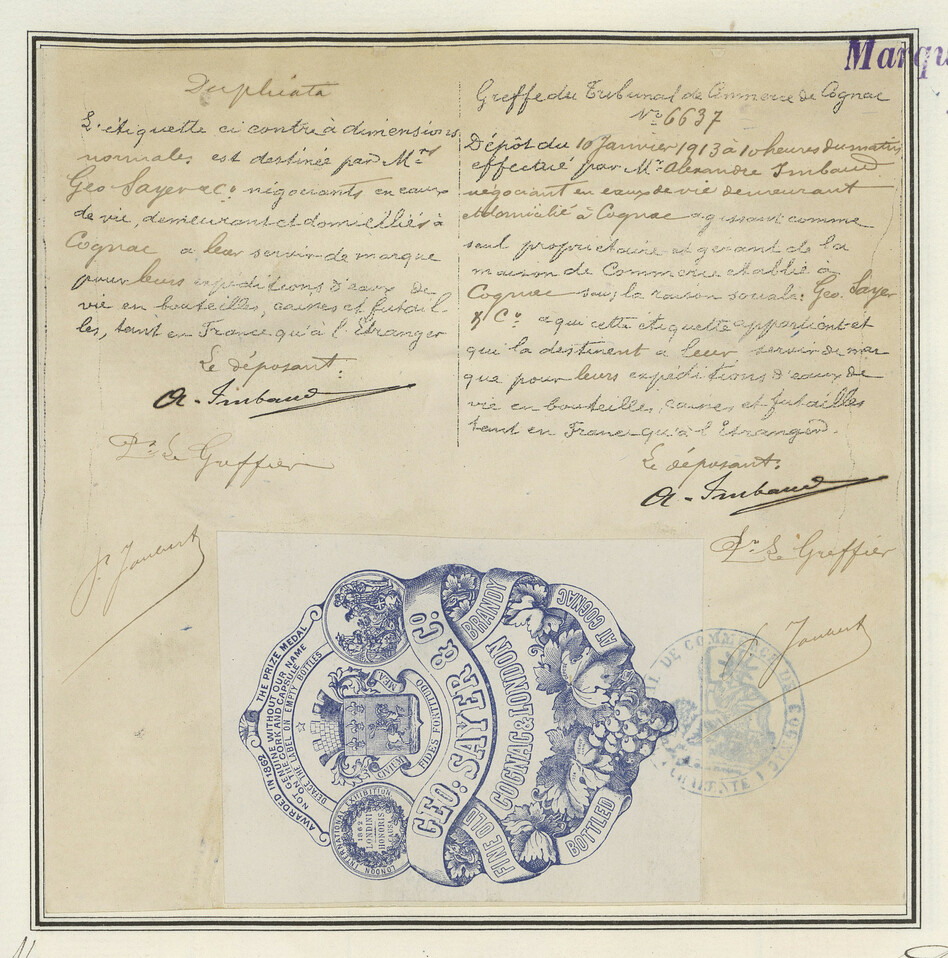 Marqu
Duplicata
L'étiquette ci contre à dimensions
normales est destinée par Mrs
Geo Sayer & Co négociants en eaux
de vie, demeurant et domiciliés à
Cognac a leur servir de marque
pour leurs expéditions d'eaux de
vie en bouteilles, caisses et futail-
les, tant en France qu'à l'Etranger
Le déposant:
A. Imbaud
Pr Le Greffier
J. Joubert
Greffe du Tribunal de Commerce de Cognac
No 6637
Dépôt du 10 Janvier 1913 à 10 heures du matin
effectué par Mr Alexandre Imbaud
négociant en eaux de vie demeurant
et domicilié à Cognac agissant comme
seul propriétaire et gérant de la
maison de Commerce établie à
Cognac sous la raison sociale: Geo. Sayer
& Co a qui cette étiquette appartient et
qui la destinent a leur servir de mar
que pour leurs expéditions d'eaux de
vie en bouteilles, caisses et futailles
tant en France qu'à l'Etranger.
Le déposant:
A. Imbaud
Pr Le Greffier
J. Joubert
AWARDED IN 1862 THE PRIZE MEDAL
NOT GENUINE WITHOUT OUR NAME
ON THE CORK AND CAPSULE
DEFACE THE LABEL ON EMPTY BOTTLES
LONDON INTERNATIONAL EXHIBITION
1862
LONDINI
HONORIS
CAUSA
MEA FIDES FORTITUDO
CIVIUM
GEO: SAYER & Co.
FINE OLD BRANDY
COGNAC & LONDON
BOTTLED AT COGNAC
DE COMMERCE DE COGNAC
CHARENTE